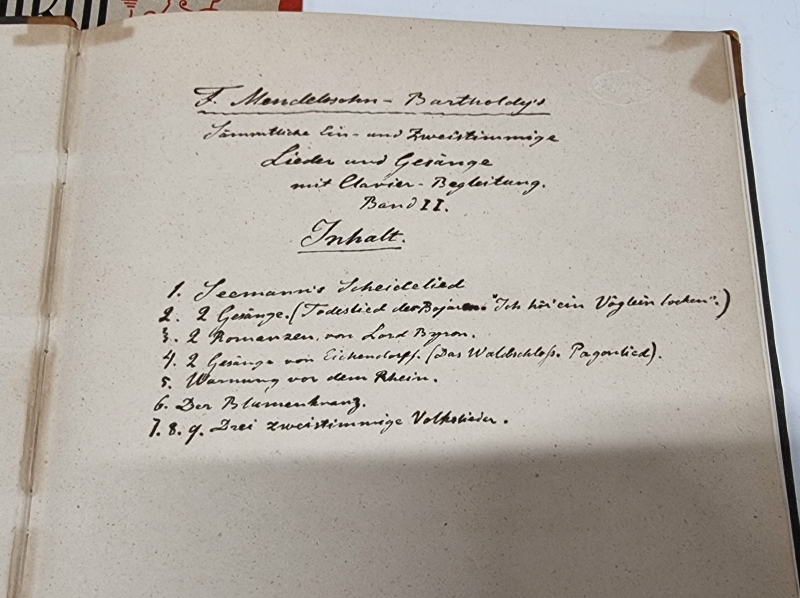 F. Mendelssohn-Bartholdy's
Sämmtliche Ein- und Zweistimmige
Lieder und Gesänge
mit Clavier-Begleitung.
Band II.
Inhalt.
1. Seemann's Scheidelied
2. 2 Gesänge. (Todeslied der Bojaren. "Ich hör' ein Vöglein locken".)
3. 2 Romanzen von Lord Byron.
4. 2 Gesänge von Eichendorff. (Das Waldschloß. Pagenlied).
5. Warnung vor dem Rhein.
6. Der Blumenkranz.
7. 8. 9. Drei zweistimmige Volkslieder.